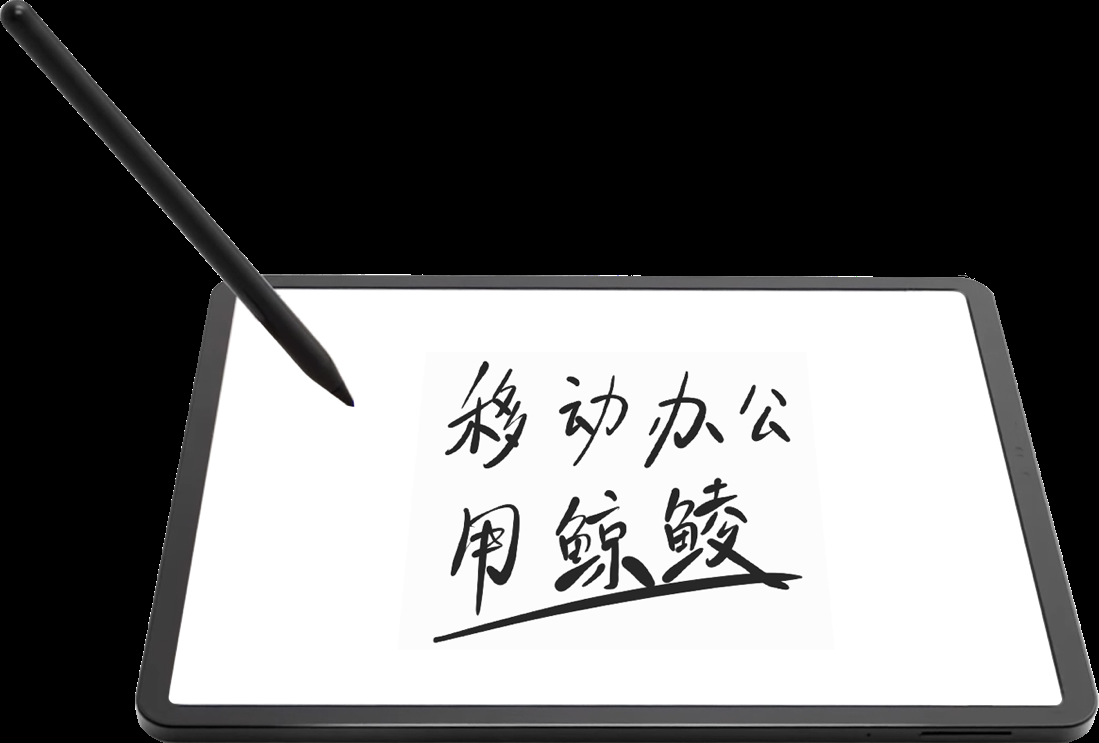 移动办公
用鲸鲮